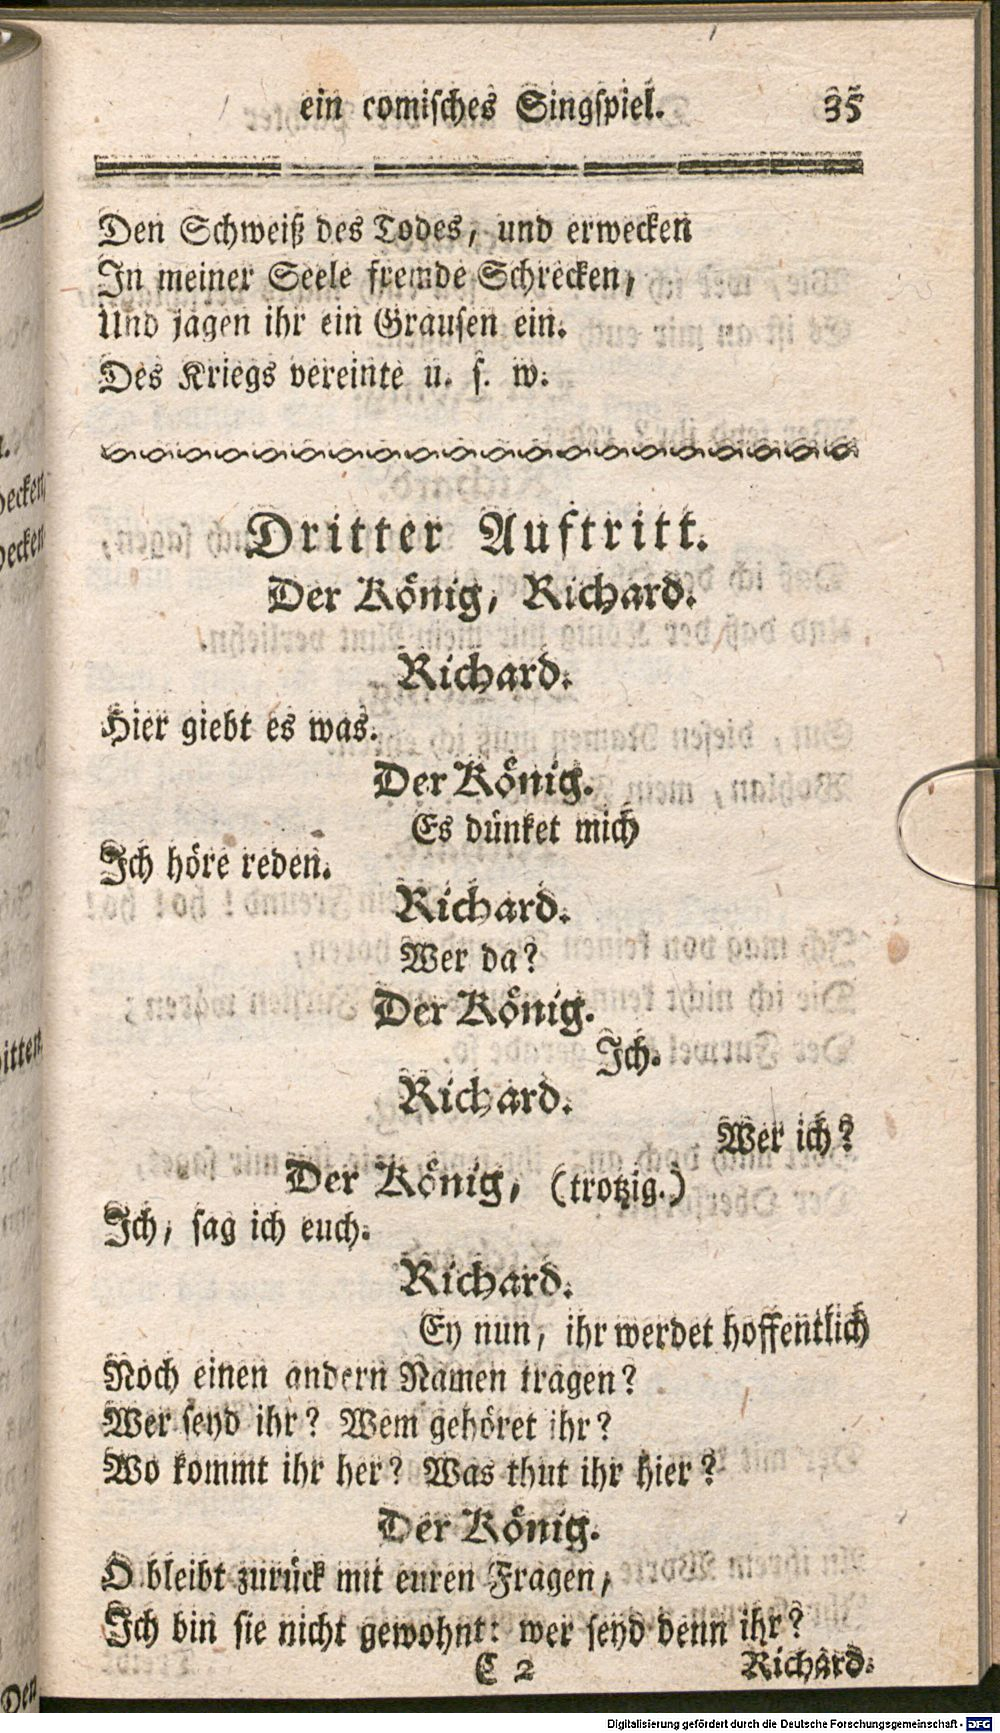 ein comisches Singspiel. 35
Den Schweiß des Todes, und erwecken
In meiner Seele fremde Schrecken,
Und jagen ihr ein Grausen ein.
Des Kriegs vereinte u. s. w.
Dritter Auftritt.
Der König, Richard.
Richard.
Hier giebt es was.
Der König.
Es dünket mich
Ich höre reden.
Richard.
Wer da?
Der König.
Ich.
Richard.
Wer ich?
Der König, (trotzig.)
Ich, sag ich euch.
Richard.
Ey nun, ihr werdet hoffentlich
Noch einen andern Namen tragen?
Wer seyd ihr? Wem gehöret ihr?
Wo kommt ihr her? Was thut ihr hier?
Der König.
O bleibt zurück mit euren Fragen,
Ich bin sie nicht gewohnt: wer seyd denn ihr?
C 2 Richard.
Digitalisierung gefördert durch die Deutsche Forschungsgemeinschaft - DFG